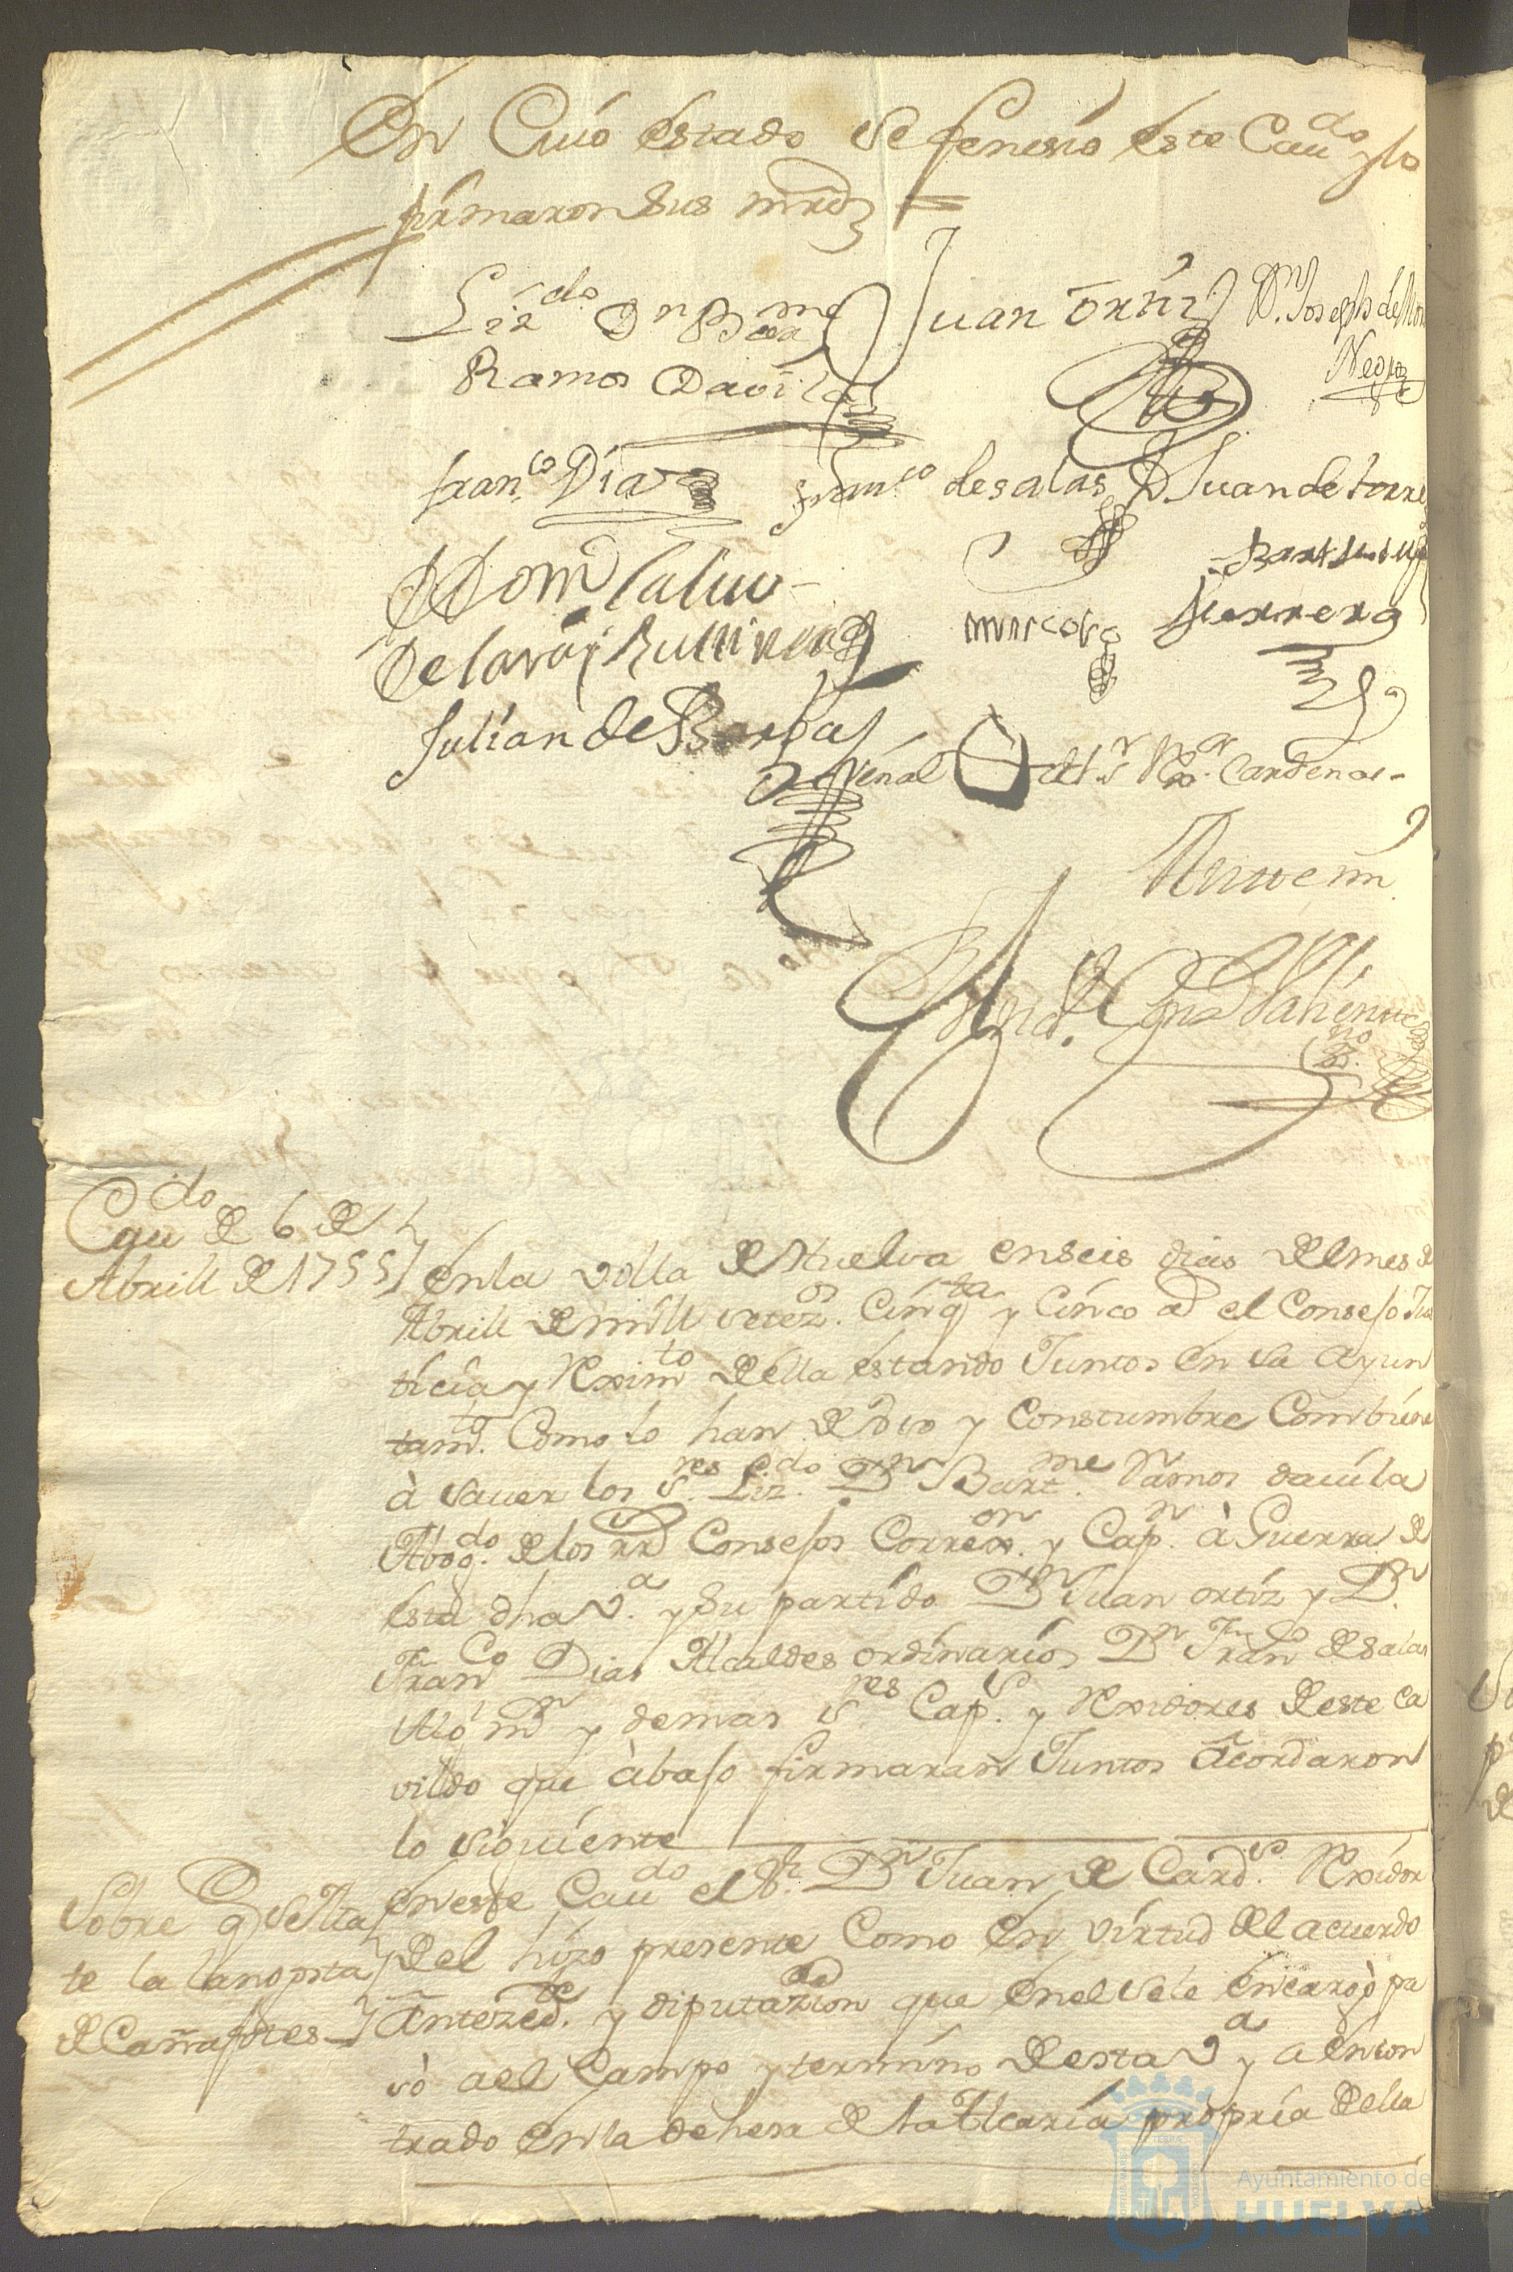 En Cuio estado se fenesio este Cau.do y lo
firmaron sus mrds =
Liz.do Dn Bme Juan Ortiz Dn Joseph de
Ramos Davila Negro
Fran.co Dias Fran.co de salas D Juan de torre
D Dom
Julian de Barbas Herrera
señal del Sr Rxor Cardenas
Antte mi
Cau.do de 6 de
Abrill de 1755
En la villa de Huelva en seis dias del mes de
Abrill de mill setez.os Cinq.ta y Cinco a.s el Consejo Jus
ticia y Reximto della estando Juntos en su Ayun
tamto. Como lo han de uso y Constumbre Combiene
à saver los S.res Liz.do Dn Bart.me Ramos davila
Abog.do de los rr.s Consejos Correx.or y Cap.n à Guerra de
esta dha V.a y su partido Dn Juan ortiz y Dn
Fran.co Dias Alcaldes ordinarios Dn Fran.co de salas
Alg.l m.or y demas S.res Cap.s y Rexidores de este ca
vildo que àbajo firmaran Juntos Acordaron
lo siguiente
Sobre q se
te la
de Cañafotes
En este Cau.do el Sr. Dn Juan de Card.s Rexidor
del hizo presente Como en virtud del acuerdo
Antezed.te y diputazion que en el se le encargò pa
sò a el Campo y termino de esta V.a y a encon
trado en la dehesa de la Alcaria propria della
Ayuntamiento de
HUELVA